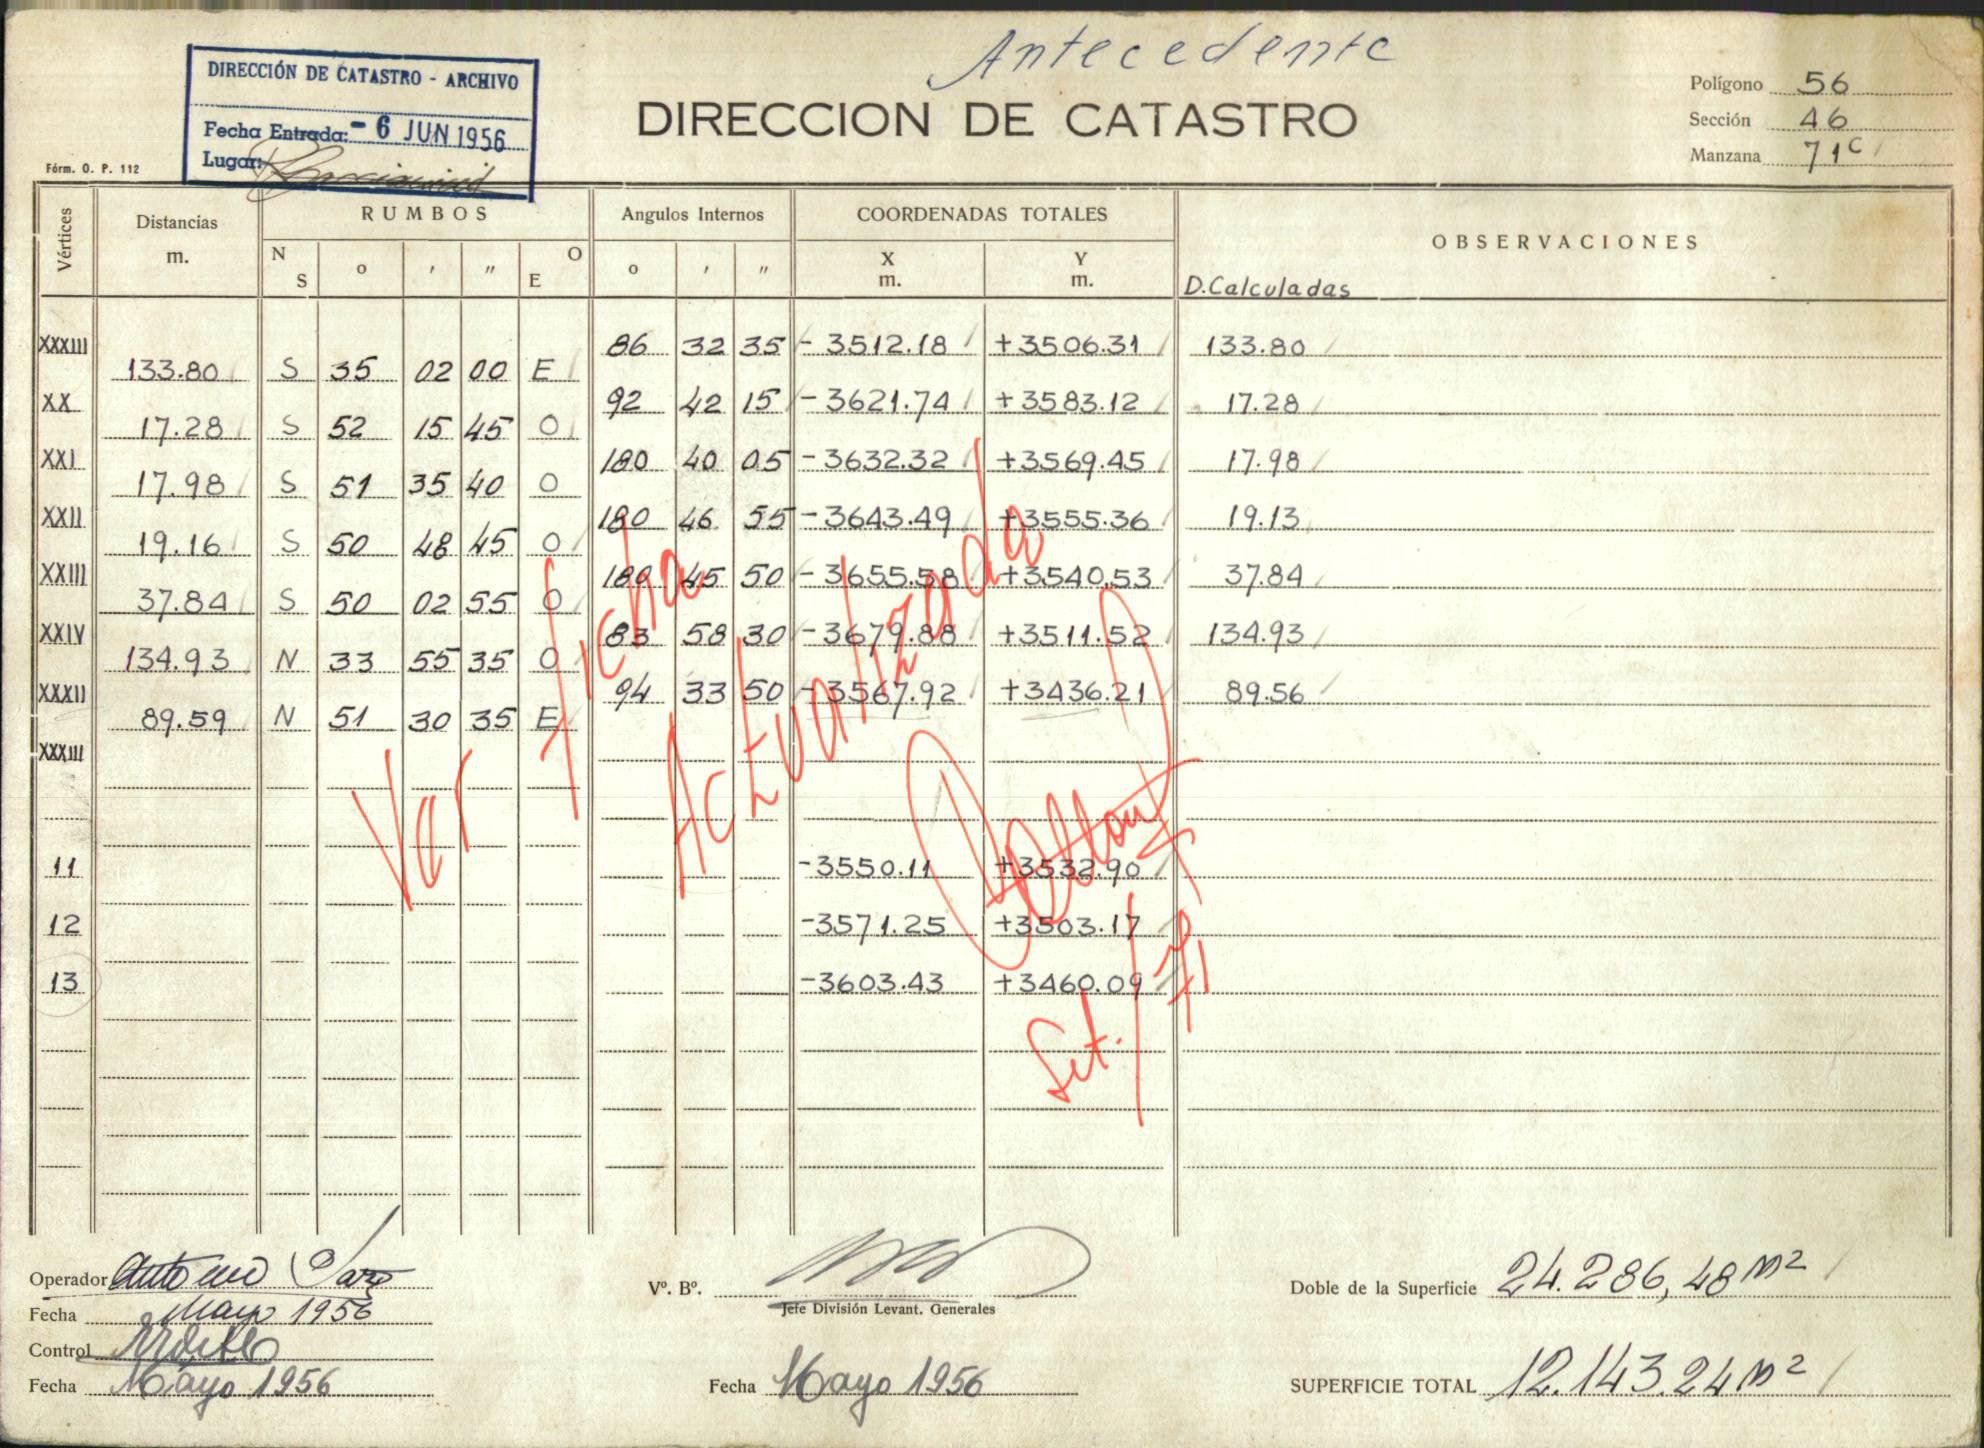 Antecedente
DIRECCIÓN DE CATASTRO - ARCHIVO
Fecha Entrada: - 6 JUN 1956
Lugar:
DIRECCION DE CATASTRO
Polígono 56
Sección 46
Manzana 71c
Fórm. O. P. 112
Vértices Distancias m. RUMBOS N S o ' " O E Angulos Internos o ' " COORDENADAS TOTALES X m. Y m. OBSERVACIONES
D.Calculadas
XXXIII 86 32 35 -3512.18 +3506.31 133.80
133.80 S 35 02 00 E
XX 92 42 15 -3621.74 +3583.12 17.28
17.28 S 52 15 45 O
XXI 180 40 05 -3632.32 +3569.45 17.98
17.98 S 51 35 40 O
XXII 180 46 55 -3643.49 +3555.36 19.13
19.16 S 50 48 45 O
XXIII 180 45 50 -3655.58 +3540.53 37.84
37.84 S 50 02 55 O
XXIV 83 58 30 -3679.88 +3511.52 134.93
134.93 N 33 55 35 O
XXXII 94 33 50 -3567.92 +3436.21 89.56
89.59 N 51 30 35 E
XXXIII
11 -3550.11 +3532.90
12 -3571.25 +3503.17
13 -3603.43 +3460.09
Ver ficha Actualizada
Set. / 71
Operador Antonio
Fecha Mayo 1956
Control
Fecha Mayo 1956
Vº. Bº.
Jefe División Levant. Generales
Fecha Mayo 1956
Doble de la Superficie 24.286,48 m2
SUPERFICIE TOTAL 12.143.24 m2